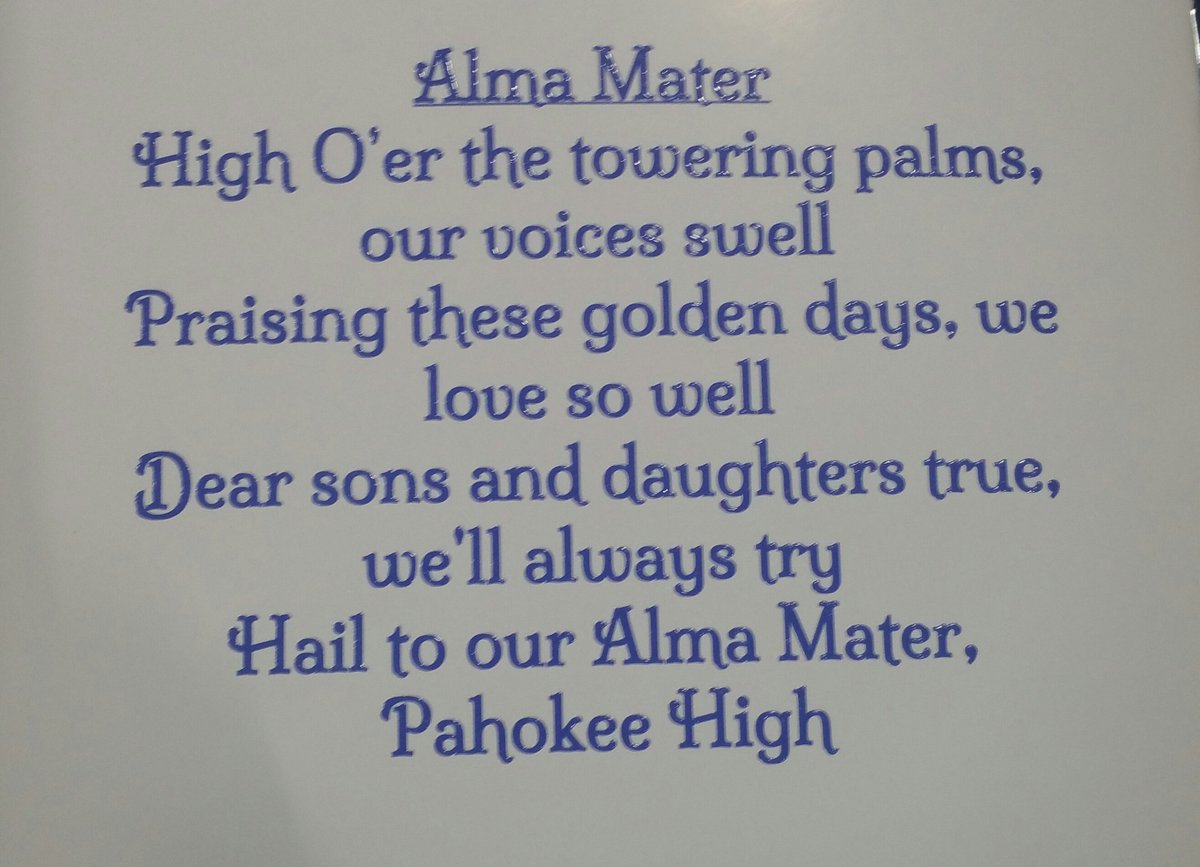 Alma Mater
High O'er the towering palms,
our voices swell
Praising these golden days, we
love so well
Dear sons and daughters true,
we'll always try
Hail to our Alma Mater,
Pahokee High